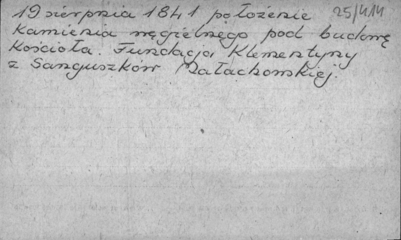 19 sierpnia 1841 położenie 25/414
kamienia węgielnego pod budowę
kościoła. Fundacja Klementyny
z Sanguszków Małachowskiej.